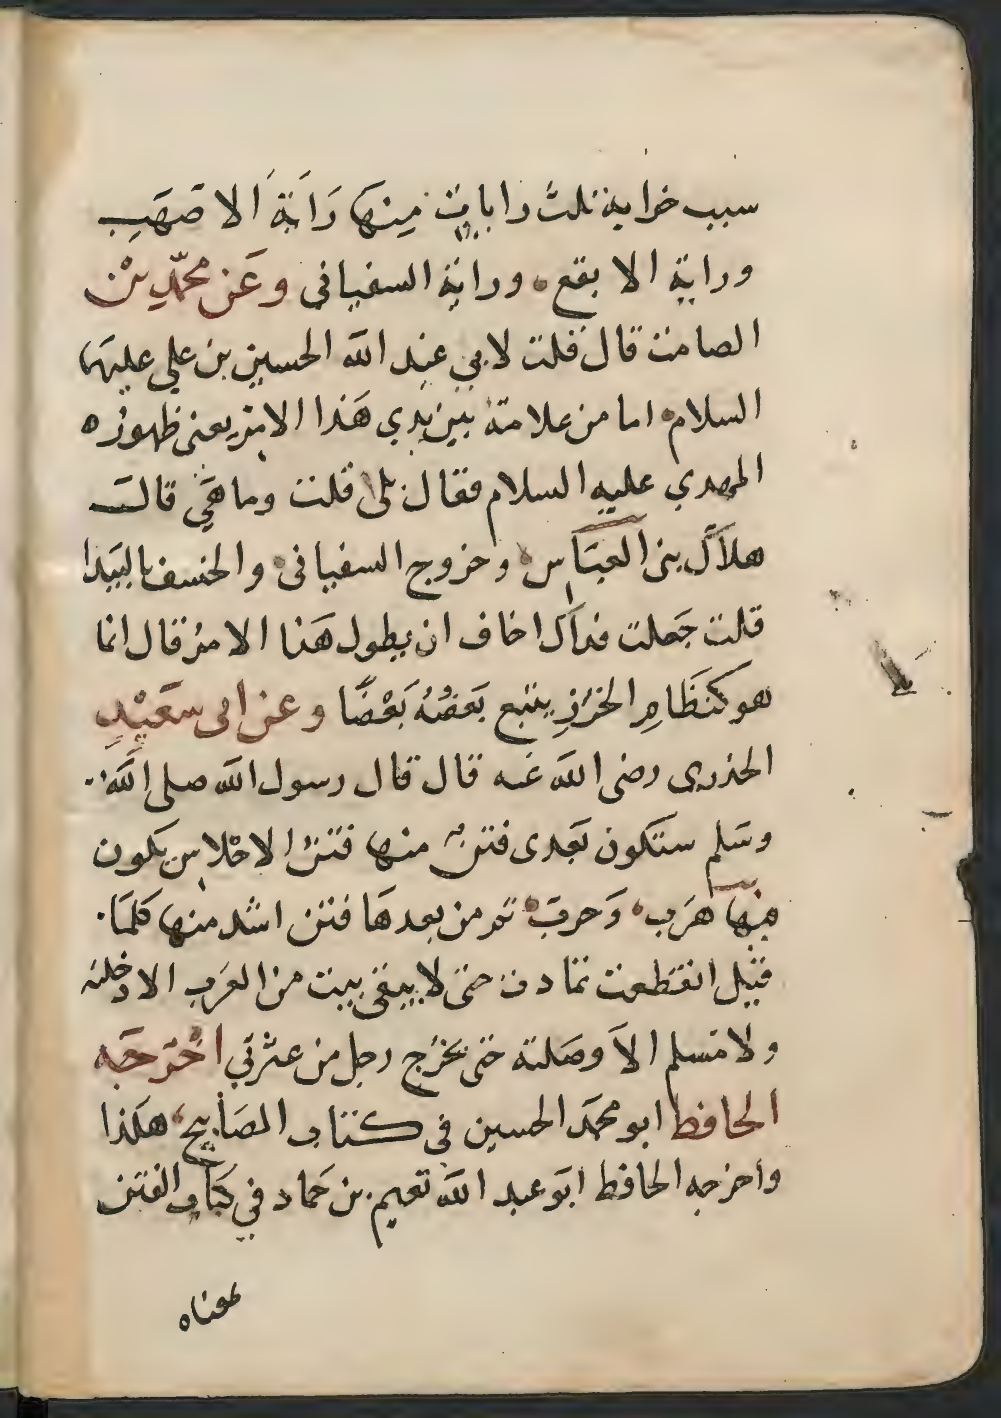 سبب خرابه ثلث رايات منها راية الاصهب
وراية الابقع وراية السفياني وعن محمد بن
الصامت قال قلت لابي عبد الله الحسين بن علي عليهما
السلام اما من علامة بين يدي هذا الامر يعني ظهور
المهدي عليه السلام فقال بلى قلت وما هي قال
هلاك بني العباس وخروج السفياني والخسف بالبيدا
قلت جعلت فداك اخاف ان يطول هذا الامر قال انما
هو كنظام الخرز يتبع بعضه بعضا وعن ابي سعيد
الخدري رضي الله عنه قال قال رسول الله صلى الله
وسلم ستكون بعدي فتن منها فتن الاحلاس يكون
فيها هرب وحرب ثم من بعدها فتن اشد منها كلما
قيل انقطعت تمادت حتى لا يبقى بيت من العرب الا دخلته
ولا مسلم الا وصلته حتى يخرج رجل من عترتي اخرجه
الحافظ ابو محمد الحسين في كتاب المصابيح هكذا
واخرجه الحافظ ابو عبد الله نعيم بن حماد في كتاب الفتن
بمعناه